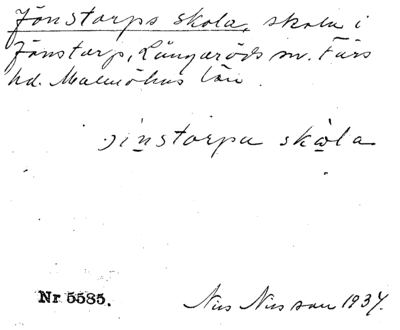 Jönstorps skola, skola i
Jönstorp, Långaröds sn. Färs
hd. Malmöhus län.
jinstorpa skola
Nr 5585.
Nils Nilsson 1937.